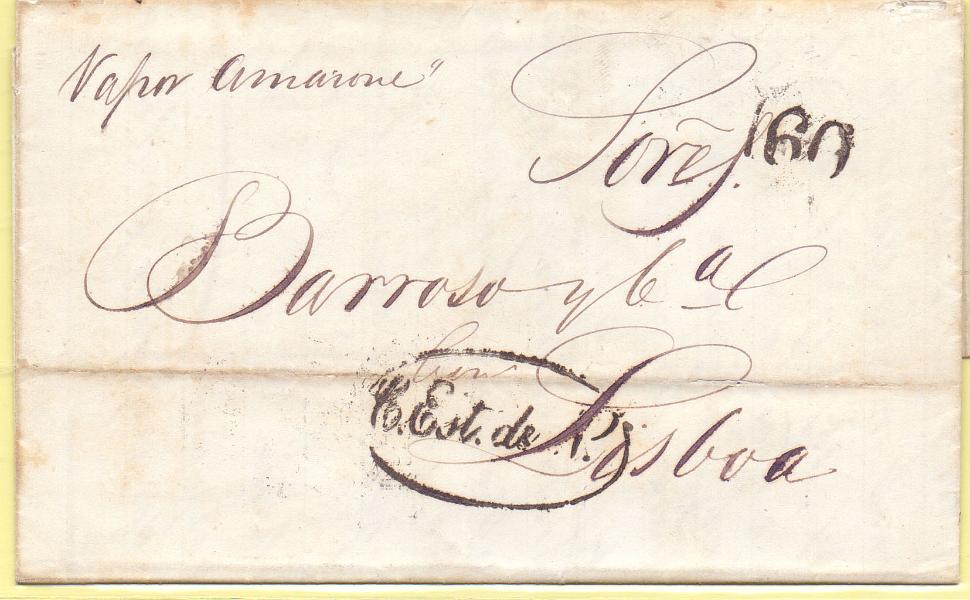 Vapor Amazone"
Sorẽs.
160
Barroso y Cª
C. Est. de P.
Lisboa